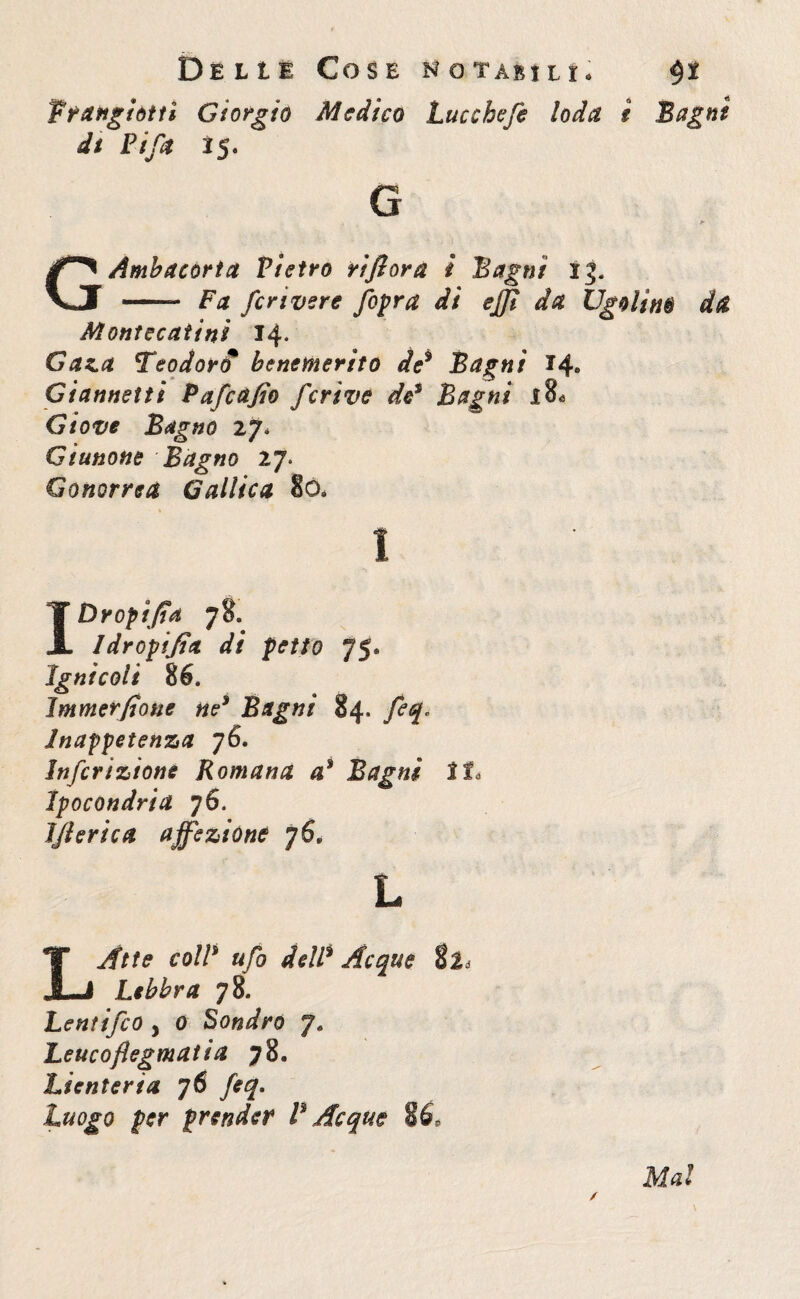 DELLE COSE NOTABILI. 91
Frangiotti Giorgio Medico Lucchese loda i Bagni
di Pisa 15.
G
GAmbacorta Pietro ristora i Bagni 13.
—— Fa scrivere sopra di essi da Ugolino da
Montecatini 14.
Gaza Teodoro benemerito de' Bagni 14.
Giannetti Pascasio scrive de' Bagni 18.
Giove Bagno 27.
Giunone Bagno 27.
Gonorrea Gallica 80.
I
IDropisia 78.
Idropisia di petto 75.
Ignicoli 86.
Immersione ne' Bagni 84. seq.
Inappetenza 76.
Inscrizione Romana a' Bagni 11.
Ipocondria 76.
Isterica affezione 76.
L
LAtte coll' uso dell' Acque 82.
Lebbra 78.
Lentisco, o Sondro 7.
Leucoflegmatia 78.
Lienteria 76 seq.
Luogo per prender l' Acque 86.
Mal